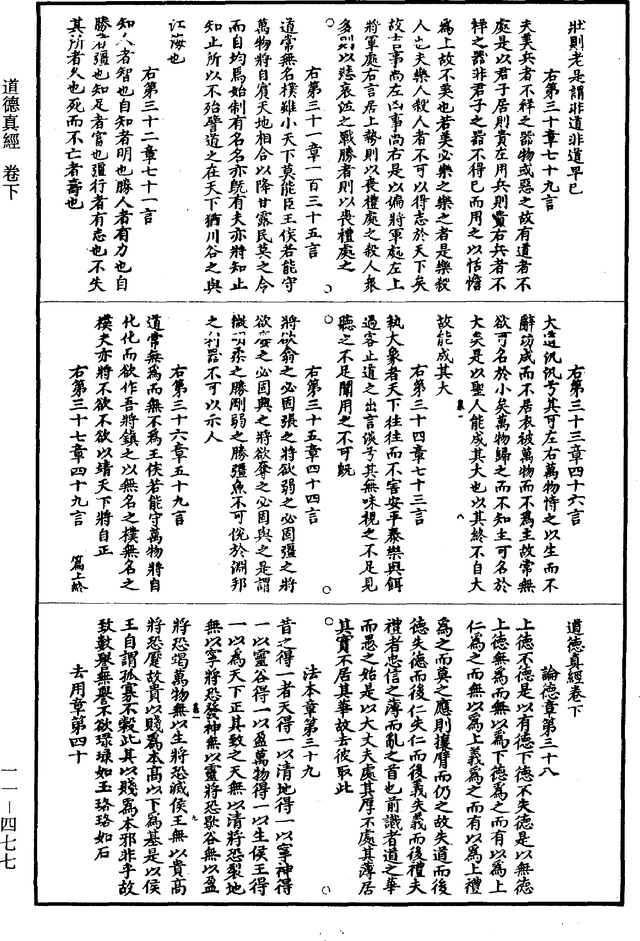 壯則老是謂非道非道早已
右第三十章七十九言
夫美兵者不祥之器物或惡之故有道者不
處是以君子居則貴左用兵則貴右兵者不
祥之器非君子之器不得已而用之以恬憺
爲上故不美也若美必樂之樂之者是樂殺
人也夫樂人殺人者不可以得志於天下矣
故吉事尚左凶事尚右是以偏將軍處左上
將軍處右言居上勢則以喪禮處之殺人衆
多則以悲哀泣之戰勝者則以喪禮處之
右第三十一章一百三十五言
道常無名樸雖小天下莫能臣王侯若能守
萬物將自賓天地相合以降甘露民莫之令
而自均焉始制有名名亦既有夫亦將知止
知止所以不殆譬道之在天下猶川谷之與
江海也
右第三十二章七十一言
知人者智也自知者明也勝人者有力也自
勝者彊也知足者富也彊行者有志也不失
其所者久也死而不亡者壽也
右第三十三章四十六言
大道汎汎兮其可左右萬物恃之以生而不
辭功成而不居衣被萬物而不爲主故常無
欲可名於小矣萬物歸之而不知主可名於
大矣是以聖人能成其大也以其終不自大
故能成其大
右第三十四章七十三言
執大象者天下往往而不害安平泰樂與餌
過客止道之出言淡兮其無味視之不足見
聽之不足聞用之不可既
右第三十五章四十四言
將欲翕之必固張之將欲弱之必固彊之將
欲廢之必固興之將欲奪之必固與之是謂
微明柔之勝剛弱之勝彊魚不可倪於淵邦
之利器不可以示人
右第三十六章五十九言
道常無爲而無不爲王侯若能守萬物將自
化化而欲作吾將鎮之以無名之樸無名之
樸夫亦將不欲不欲以靖天下將自正
右第三十七章四十九言 篇上終
道德真經卷下
論德章第三十八
上德不德是以有德下德不失德是以無德
上德無爲而無以爲下德爲之而有以爲上
仁爲之而無以爲上義爲之而有以爲上禮
爲之而莫之應則攘臂而仍之故失道而後
德失德而後仁失仁而後義失義而後禮夫
禮者忠信之薄而亂之首也前識者道之華
而愚之始是以大丈夫處其厚不處其薄居
其實不居其華故去彼取此
法本章第三十九
昔之得一者天得一以清地得一以寧神得
一以靈谷得一以盈萬物得一以生侯王得
一以爲天下正其致之天無以清將恐裂地
無以寧將恐發神無以靈將恐歇谷無以盈
將恐竭萬物無以生將恐滅侯王無以貴高
將恐蹷故貴以賤爲本高以下爲基是以侯
王自謂孤寡不穀此其以賤爲本邪非乎故
致數譽無譽不欲琭琭如玉珞珞如石
去用章第四十
道德真經 卷下
一一—四七七